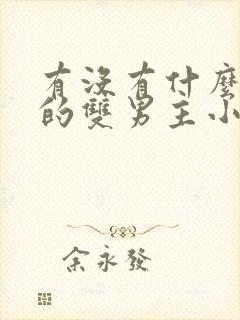 有沒有什麼
的雙男主小
余永發